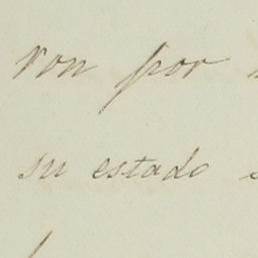 ron por
su estado